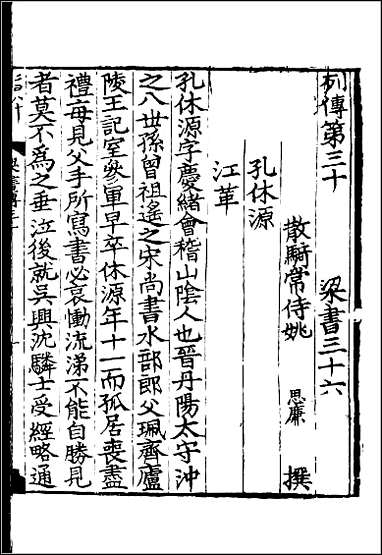 列傳第三十　梁書三十六
散騎常侍姚　思廉　撰
孔休源
江革
孔休源字慶緒會稽山陰人也晉丹陽太守沖
之八世孫曾祖遙之宋尚書水部郎父珮齊廬
陵王記室參軍早卒休源年十一而孤居喪盡
禮每見父手所寫書必哀慟流涕不能自勝見
者莫不為之垂泣後就吳興沈驎士受經略通